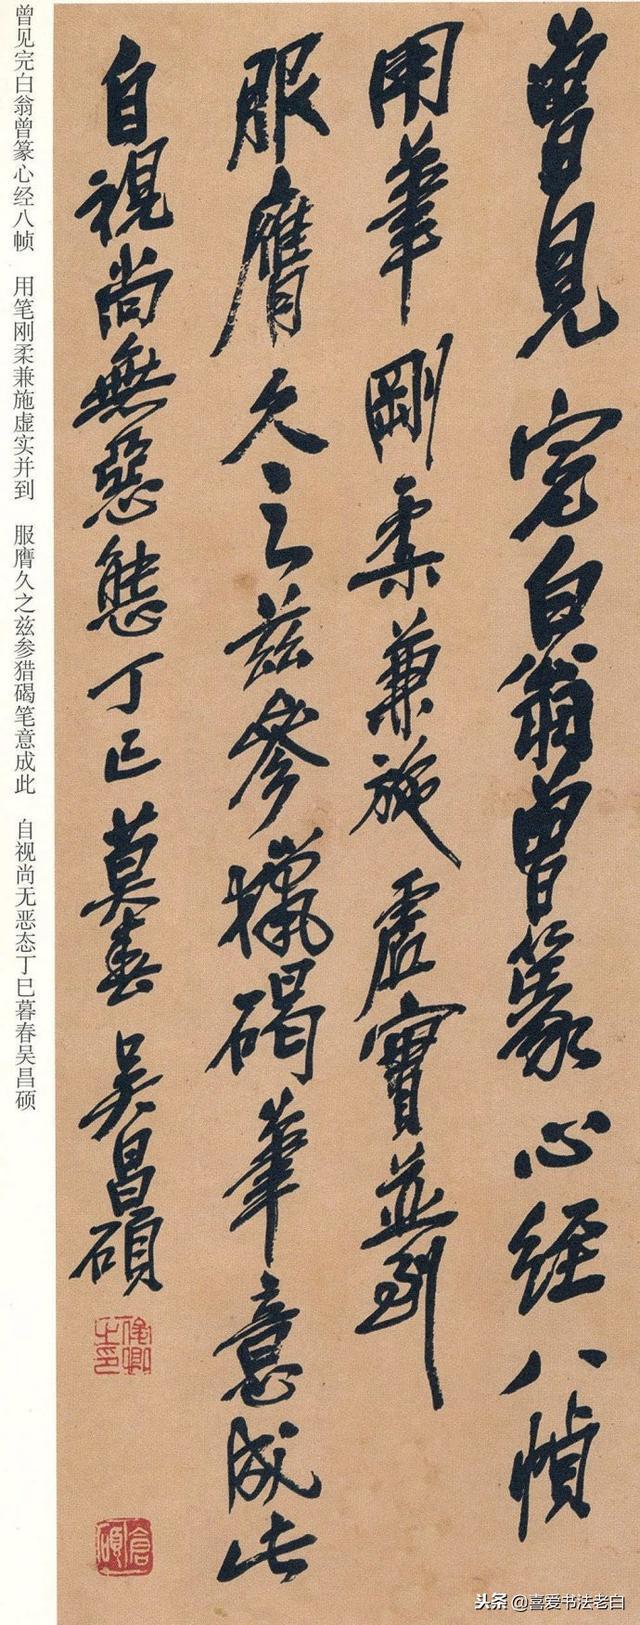 曾見完白翁曾篆心經八幀
用筆剛柔兼施虛實並到
服膺久之兹參獵碣筆意成此
自視尚無惡態丁巳莫春吳昌碩
俊卿之印
倉碩
曾见完白翁曾篆心经八帧 用笔刚柔兼施虚实并到 服膺久之兹参猎碣笔意成此 自视尚无恶态丁巳暮春吴昌硕
头条@喜爱书法老白